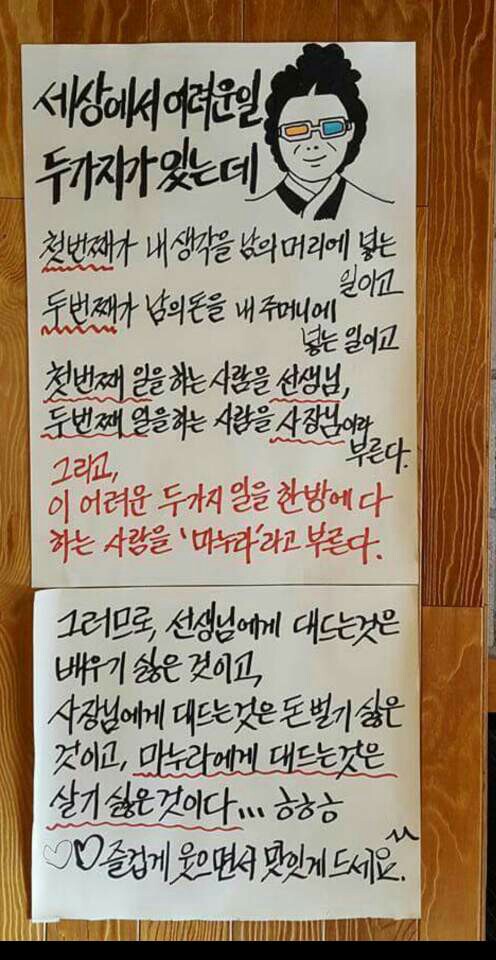 세상에서 어려운일
두가지가 있는데
첫번째가 내 생각을 남의 머리에 넣는
일이고
두번째가 남의 돈을 내 주머니에
넣는 일이고
첫번째 일을 하는 사람을 선생님,
두번째 일을하는 사람을 사장님이라
부른다.
그리고,
이 어려운 두가지 일을 한방에 다
하는 사람을 '마누라'라고 부른다.
그러므로, 선생님에게 대드는것은
배우기 싫은 것이고,
사장님에게 대드는것은 돈 벌기 싫은
것이고, 마누라에게 대드는것은
살기 싫은것이다... ㅎㅎㅎ
♡♥즐겁게 웃으면서 맛있게 드세요.^^